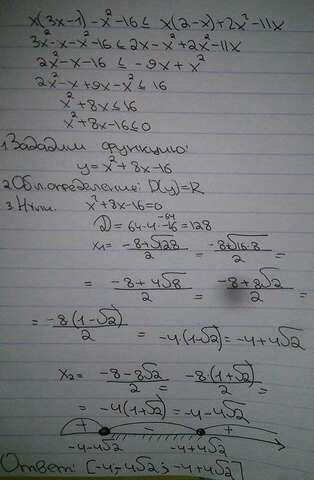 x(3x-1)-x²-16 ≤ x(2-x)+2x²-11x
3x²-x-x²-16 ≤ 2x-x²+2x²-11x
2x²-x-16 ≤ -9x+x²
2x²-x+9x-x² ≤ 16
x²+8x ≤ 16
x²+8x-16 ≤ 0
1. Зададим функцию:
y=x²+8x-16
2. Обл. определение: D(y)=R
3. Нули: x²+8x-16=0
-64
D=64-4·-16=128
x₁= (-8+√128)/2 = (-8+√16·8)/2 =
= (-8+4√8)/2 = (-8+8√2)/2 =
= -8(1-√2)/2 = -4(1-√2)=-4+4√2
x₂= (-8-8√2)/2 = -8(1+√2)/2 =
= -4(1+√2)=-4-4√2
+ - +
-4-4√2 -4+4√2
Ответ: [-4-4√2; -4+4√2]